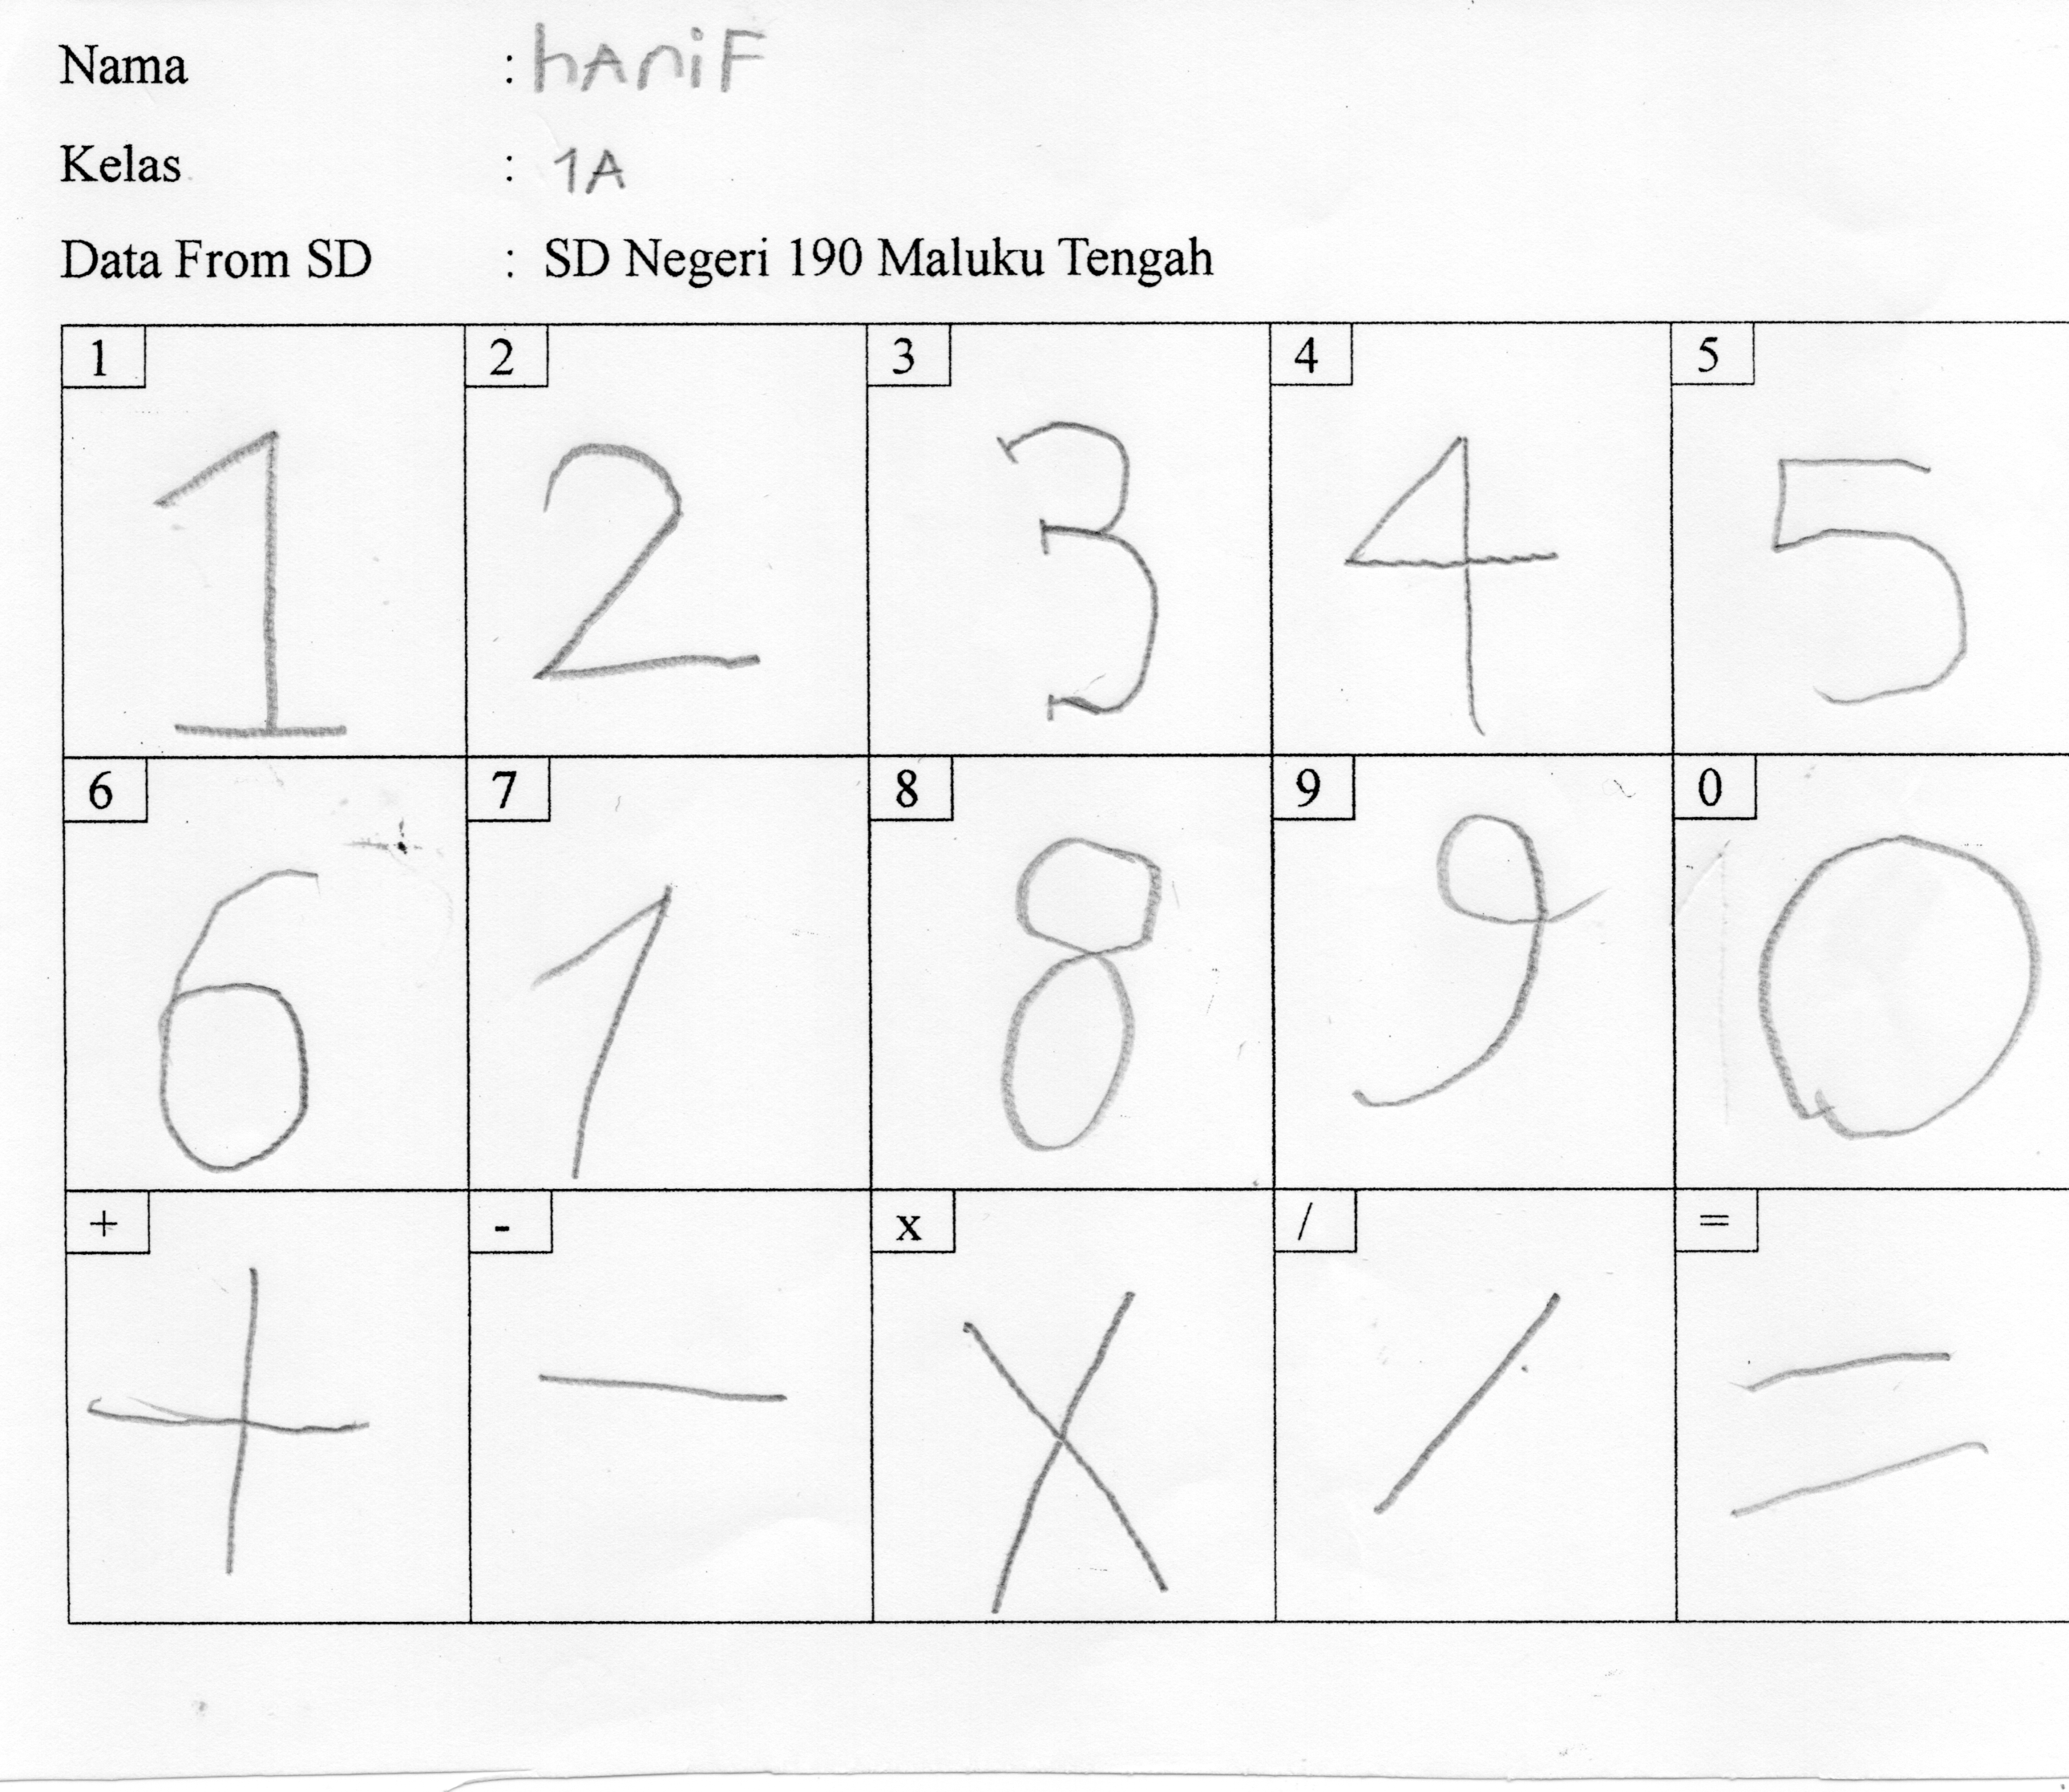 Nama : hAniF
Kelas : 1A
Data From SD : SD Negeri 190 Maluku Tengah
1 2 3 4 5
1 2 3 4 5
6 7 8 9 0
6 7 8 9 0
+ - x / =
+ - x / =